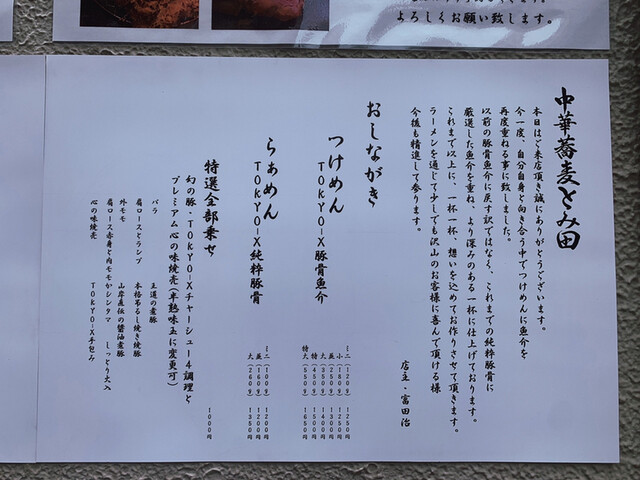 よろしくお願い致します。
中華蕎麦とみ田
本日はご来店頂き誠にありがとうございます。
今一度、自分自身と向き合う中でつけめんに魚介を
再度重ねる事に致しました。
以前の豚骨魚介に戻す訳ではなく、これまでの純粋豚骨に
厳選した魚介を重ね、より深みのある一杯に仕上げております。
これまで以上に、一杯一杯、想いを込めてお作りさせて頂きます。
ラーメンを通じて少しでも沢山のお客様に喜んで頂ける様
今後も精進して参ります。
店主・富田治
おしながき
つけめん
TOKYO-X豚骨魚介
ミニ(120g) 1250
小(180g) 1250円
並(250g) 1300円
大(350g) 1400円
特(450g) 1500円
特大(550g) 1650円
らぁめん
TOKYO-X純粋豚骨
ミニ(100g) 1200円
並(160g) 1200円
大(260g) 1350円
特選全部乗せ
幻の豚・TOKYO-Xチャーシュー4調理と
プレミアム心の味焼売(半熟味玉に変更可)
1000円
バラ 王道の煮豚
肩ロースとランプ 本格吊るし焼き焼豚
外モモ 山岸直伝の醤油煮豚
肩ロース赤身と内モモかシンタマ しっとり火入
心の味焼売 TOKYO-X手包み